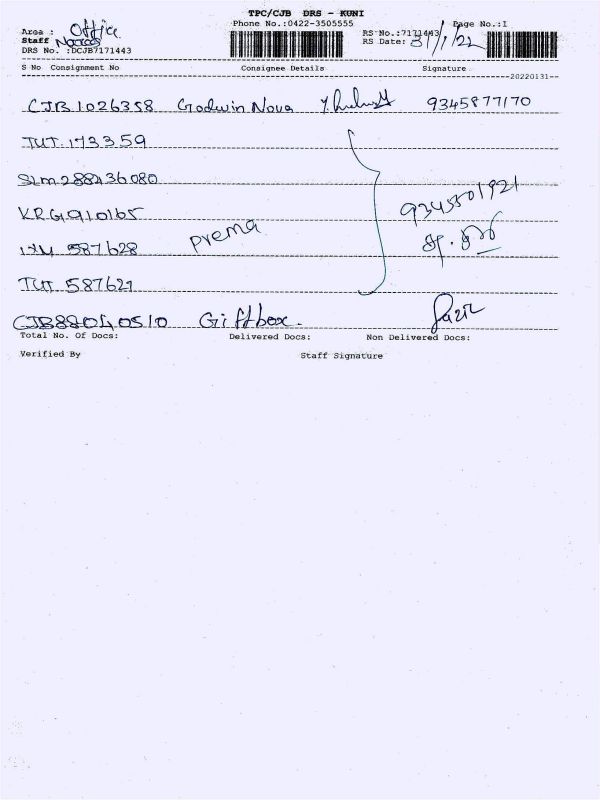 TPC/CJB DRS - KUNI
Phone No.:0422-3505555
Page No.:1
Area : Office
RS No.:7171443
Staff
RS Date: 31/1/22
DRS No. :DCJB7171443
S No Consignment No Consignee Details Signature
20220131
CJB 1026358 Godwin Nova 9345877170
TUT 173359
SLM 288436080
KRG910165
9345501921
587628 Prema
TUT 587627
CJB88040510 Giftbox.
Total No. Of Docs: Delivered Docs: Non Delivered Docs:
Verified By Staff Signature